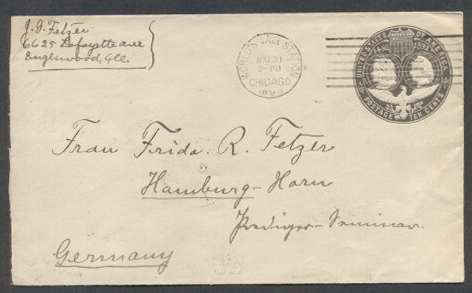 J. G. Fetzer
6625 Lafayette ave
Englewood, Ill.
WORLD'S FAIR STATION
AUG 31
2-PM
CHICAGO
1893
UNITED STATES OF AMERICA
1492 1892
POSTAGE TEN CENTS
Frau Frida. R. Fetzer
Hamburg-Horn
Prediger-Seminar.
Germany